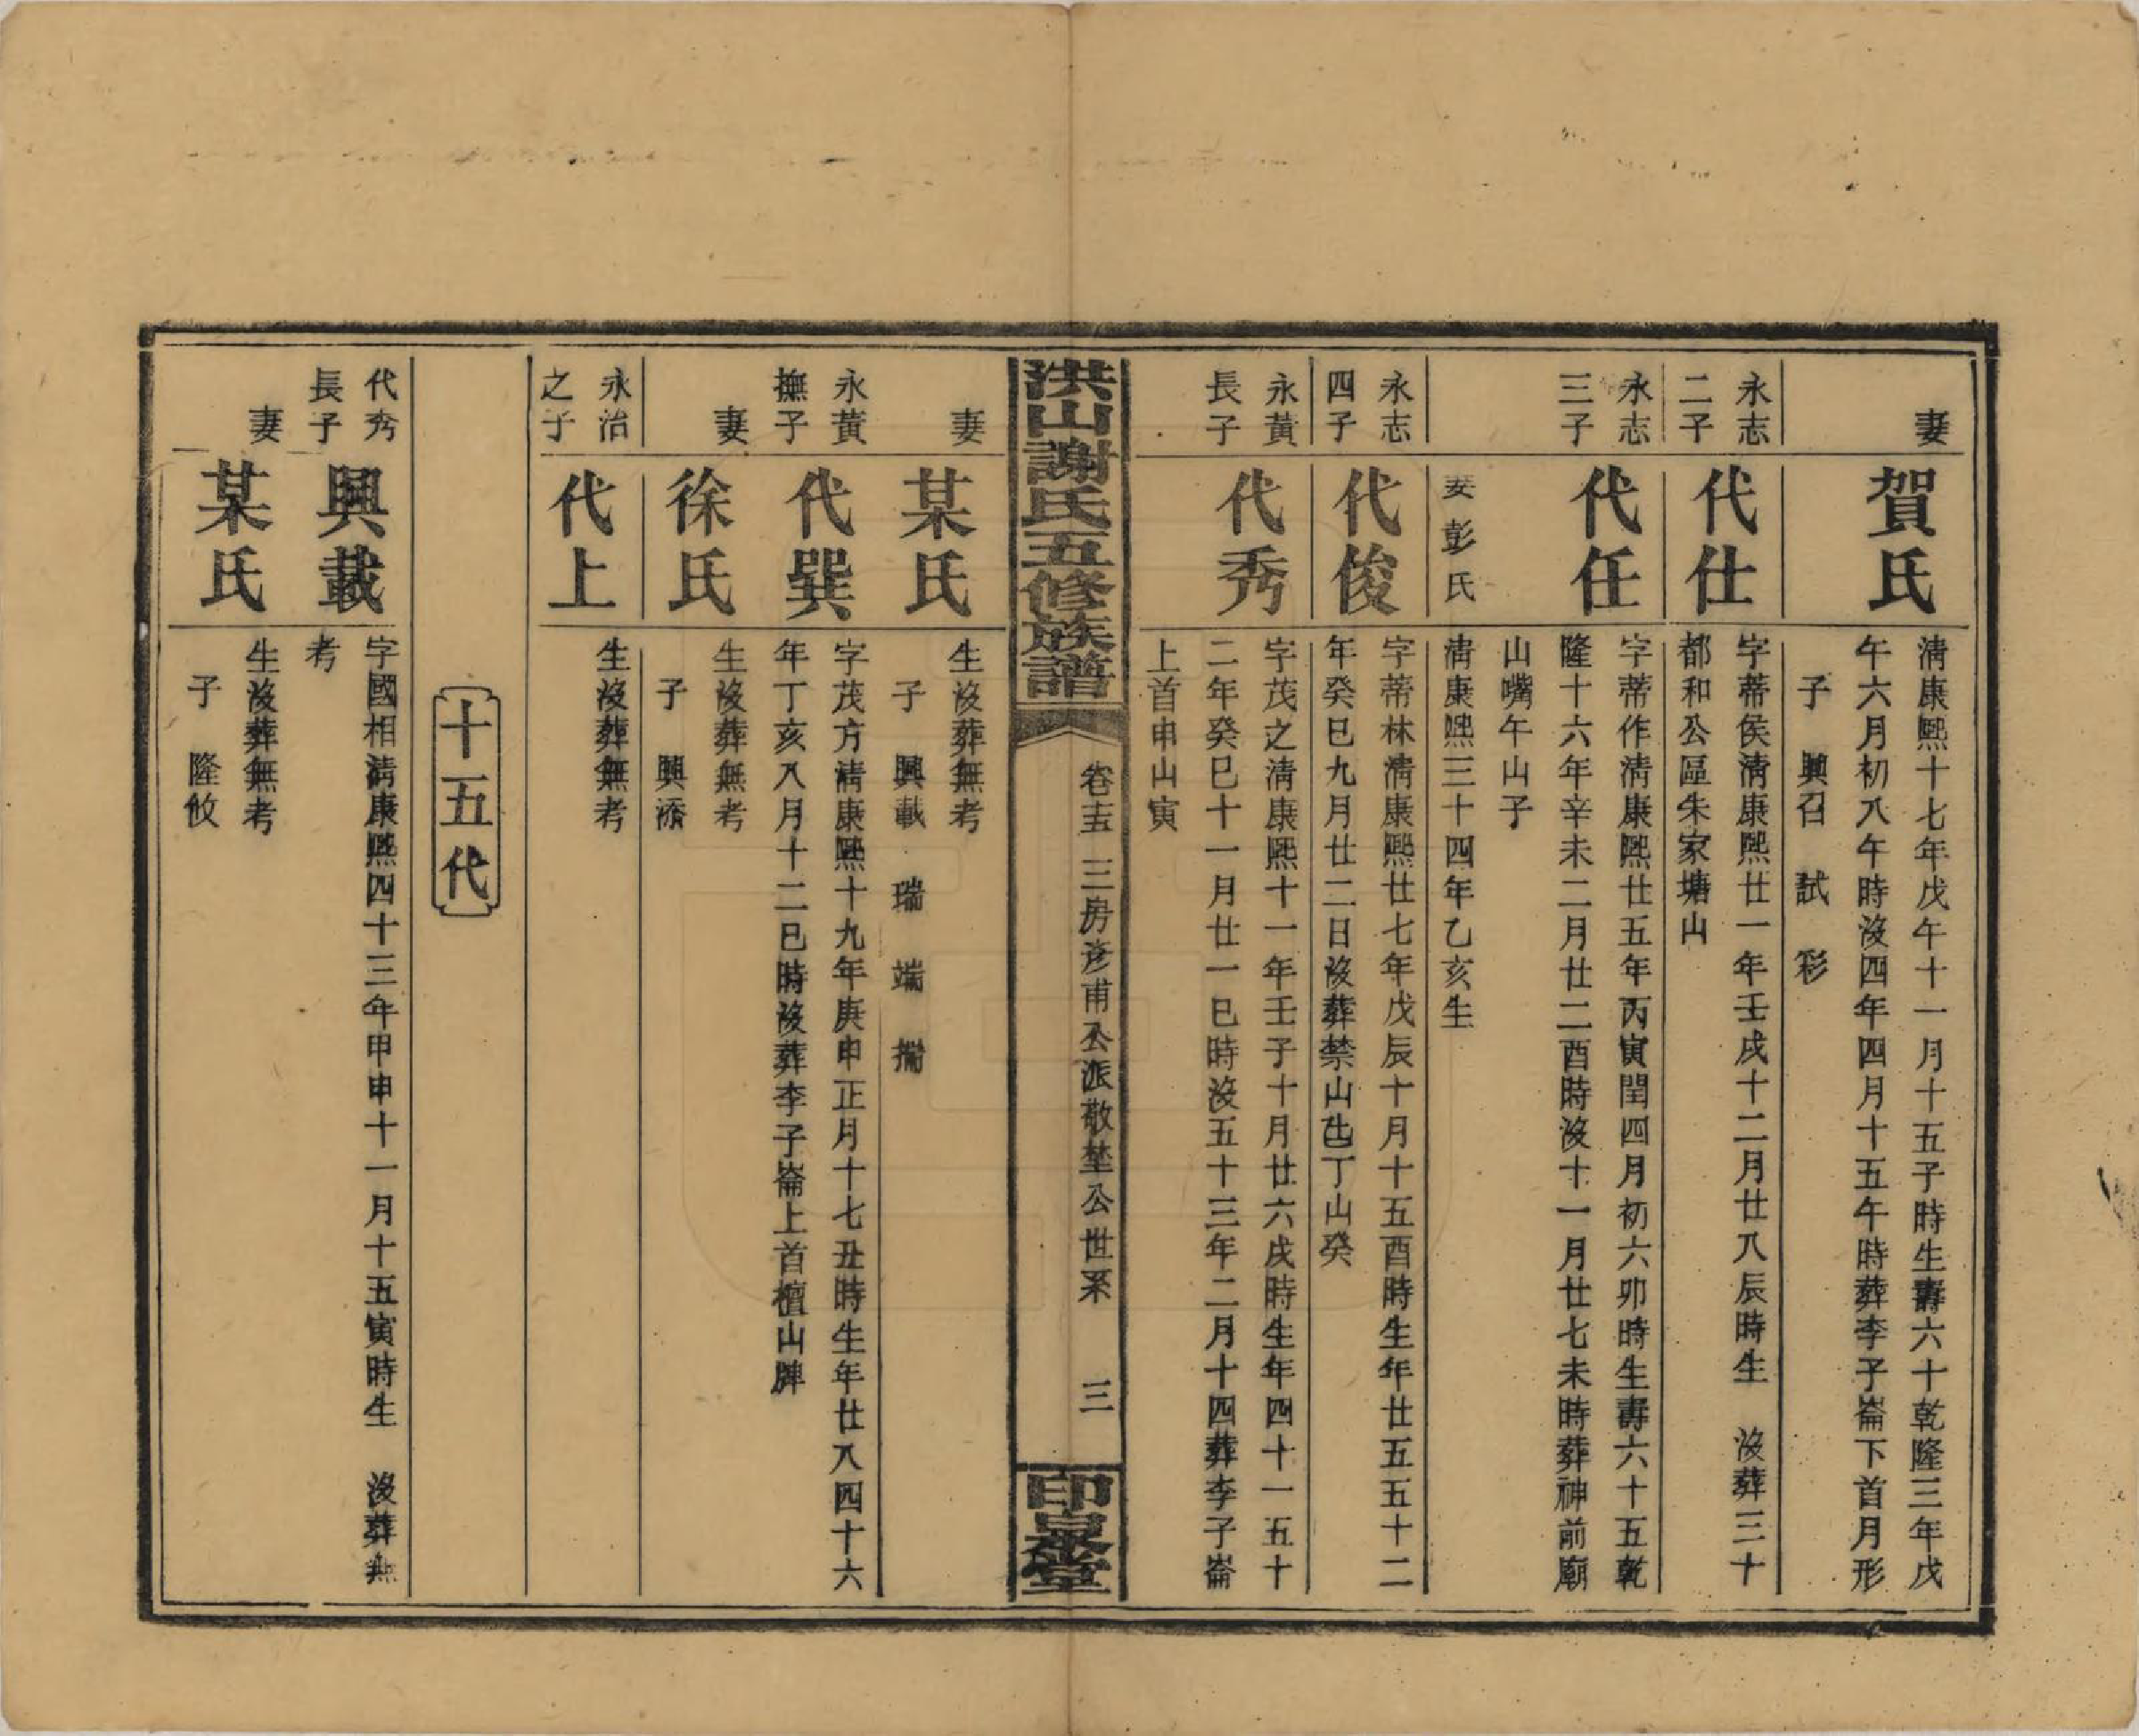 妻
賀氏
清康熙十七年戊午十一月十五子時生壽六十乾隆三年戊
午六月初八午時沒四年四月十五午時葬李子崙下首月形
子 興召 試 彩
永志
二子
代仕
字蒂侯清康熙廿一年壬戌十二月廿八辰時生 沒葬三十
都和公區朱家塘山
永志
三子
代任
字蒂作清康熙廿五年丙寅閏四月初六卯時生壽六十五乾
隆十六年辛未二月廿二酉時沒十一月廿七未時葬神前廟
山嘴午山子
妻彭氏
清康熙三十四年乙亥生
永志
四子
代俊
字蒂林清康熙廿七年戊辰十月十五酉時生年廿五五十二
年癸巳九月廿二日沒葬禁山迆丁山癸
永黃
長子
代秀
字茂之清康熙十一年壬子十月廿六戌時生年四十一五十
二年癸巳十一月廿一巳時沒五十三年二月十四葬李子崙
上首申山寅
洪山謝氏五修族譜
卷十五 三房彦甫公派敬埜公世系 三
印泉堂
妻
某氏
生沒葬無考
子 興載 瑞 端 揣
永黃
撫子
代巽
字茂方清康熙十九年庚申正月十七丑時生年廿八四十六
年丁亥八月十二巳時沒葬李子崙上首檀山牌
妻
徐氏
生沒葬無考
子 興添
永治
之子
代上
生沒葬無考
十五代
代秀
長子
興載
字國相清康熙四十三年甲申十一月十五寅時生 沒葬無
考
妻
某氏
生沒葬無考
子 隆攸